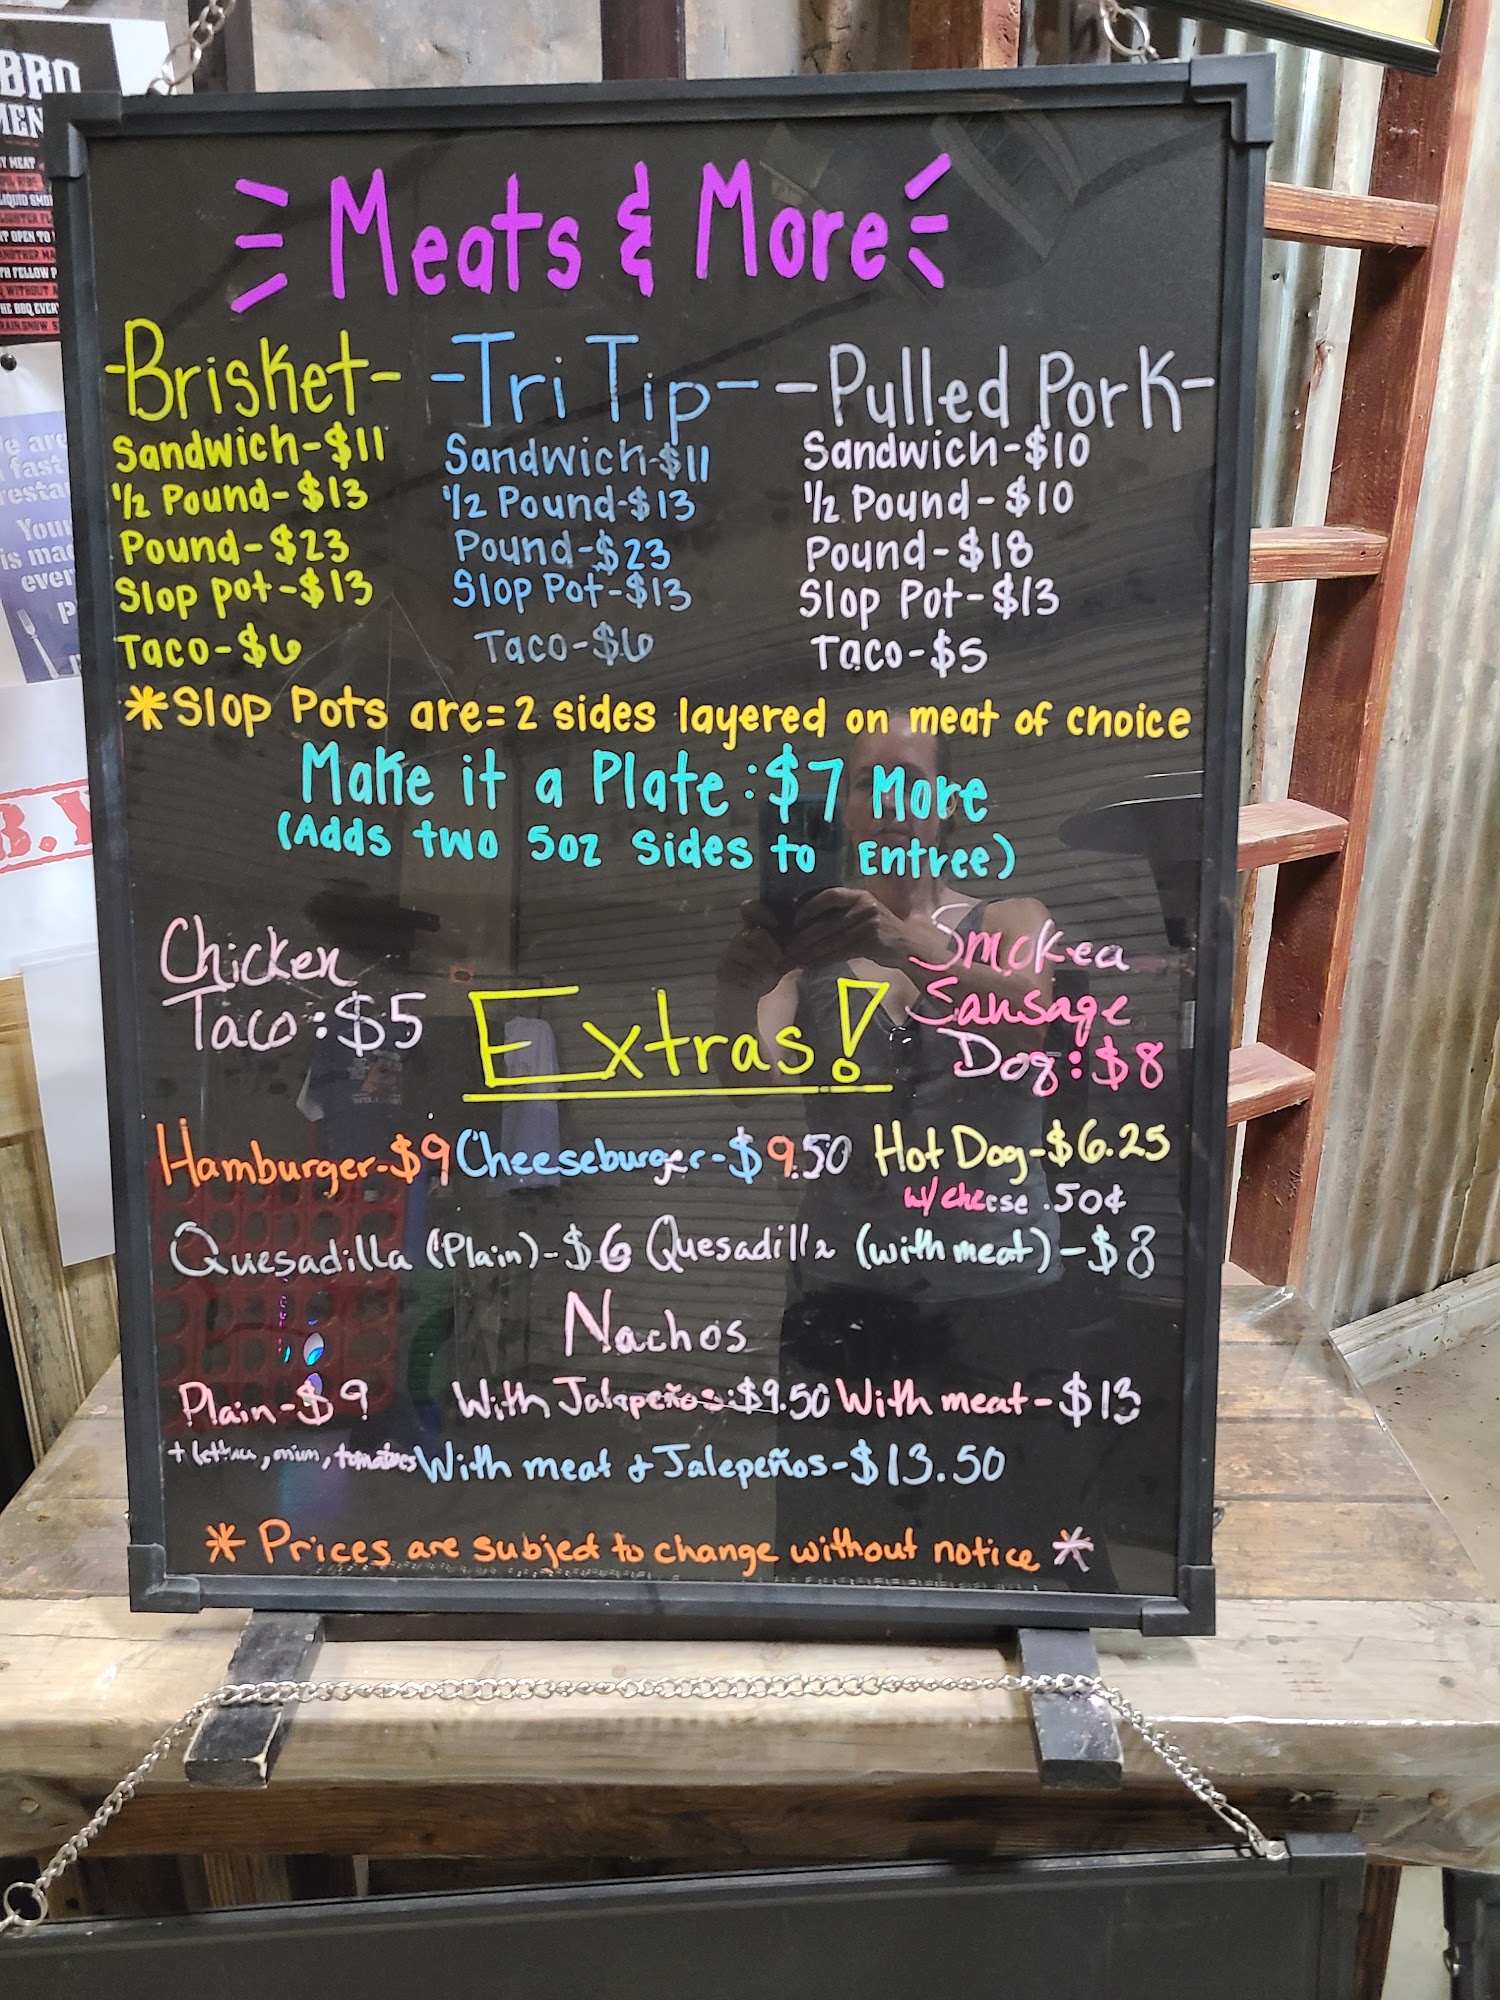 BBQ
MEN
Y MEAT
LIQUID SMO
LIGHTER FL
T OPEN TO
ANOTHER MA
TH FELLOW P
WITHOUT A
HE BBQ EVER
RAIN, SNOW, S
e are
fast
resta
Your
is mad
ever
Meats & More
-Brisket-
Sandwich-$11
1/2 Pound-$13
Pound-$23
Slop pot-$13
Taco-$6
-Tri Tip-
Sandwich-$11
1/2 Pound-$13
Pound-$23
Slop Pot-$13
Taco-$6
-Pulled Pork-
Sandwich-$10
1/2 Pound-$10
Pound-$18
Slop Pot-$13
Taco-$5
*Slop Pots are=2 sides layered on meat of choice
Make it a Plate:$7 More
(Adds two 5oz Sides to Entree)
Chicken
Taco:$5
Extras!
Smoked
Sausage
Dog:$8
Hamburger-$9 Cheeseburger-$9.50 Hot Dog-$6.25
w/cheese .50¢
Quesadilla (Plain)-$6 Quesadilla (with meat)-$8
Nachos
Plain-$9 With Jalapeños:$9.50 With meat-$13
+ lettuce, onion, tomatoes With meat & Jalepeños-$13.50
* Prices are subject to change without notice *